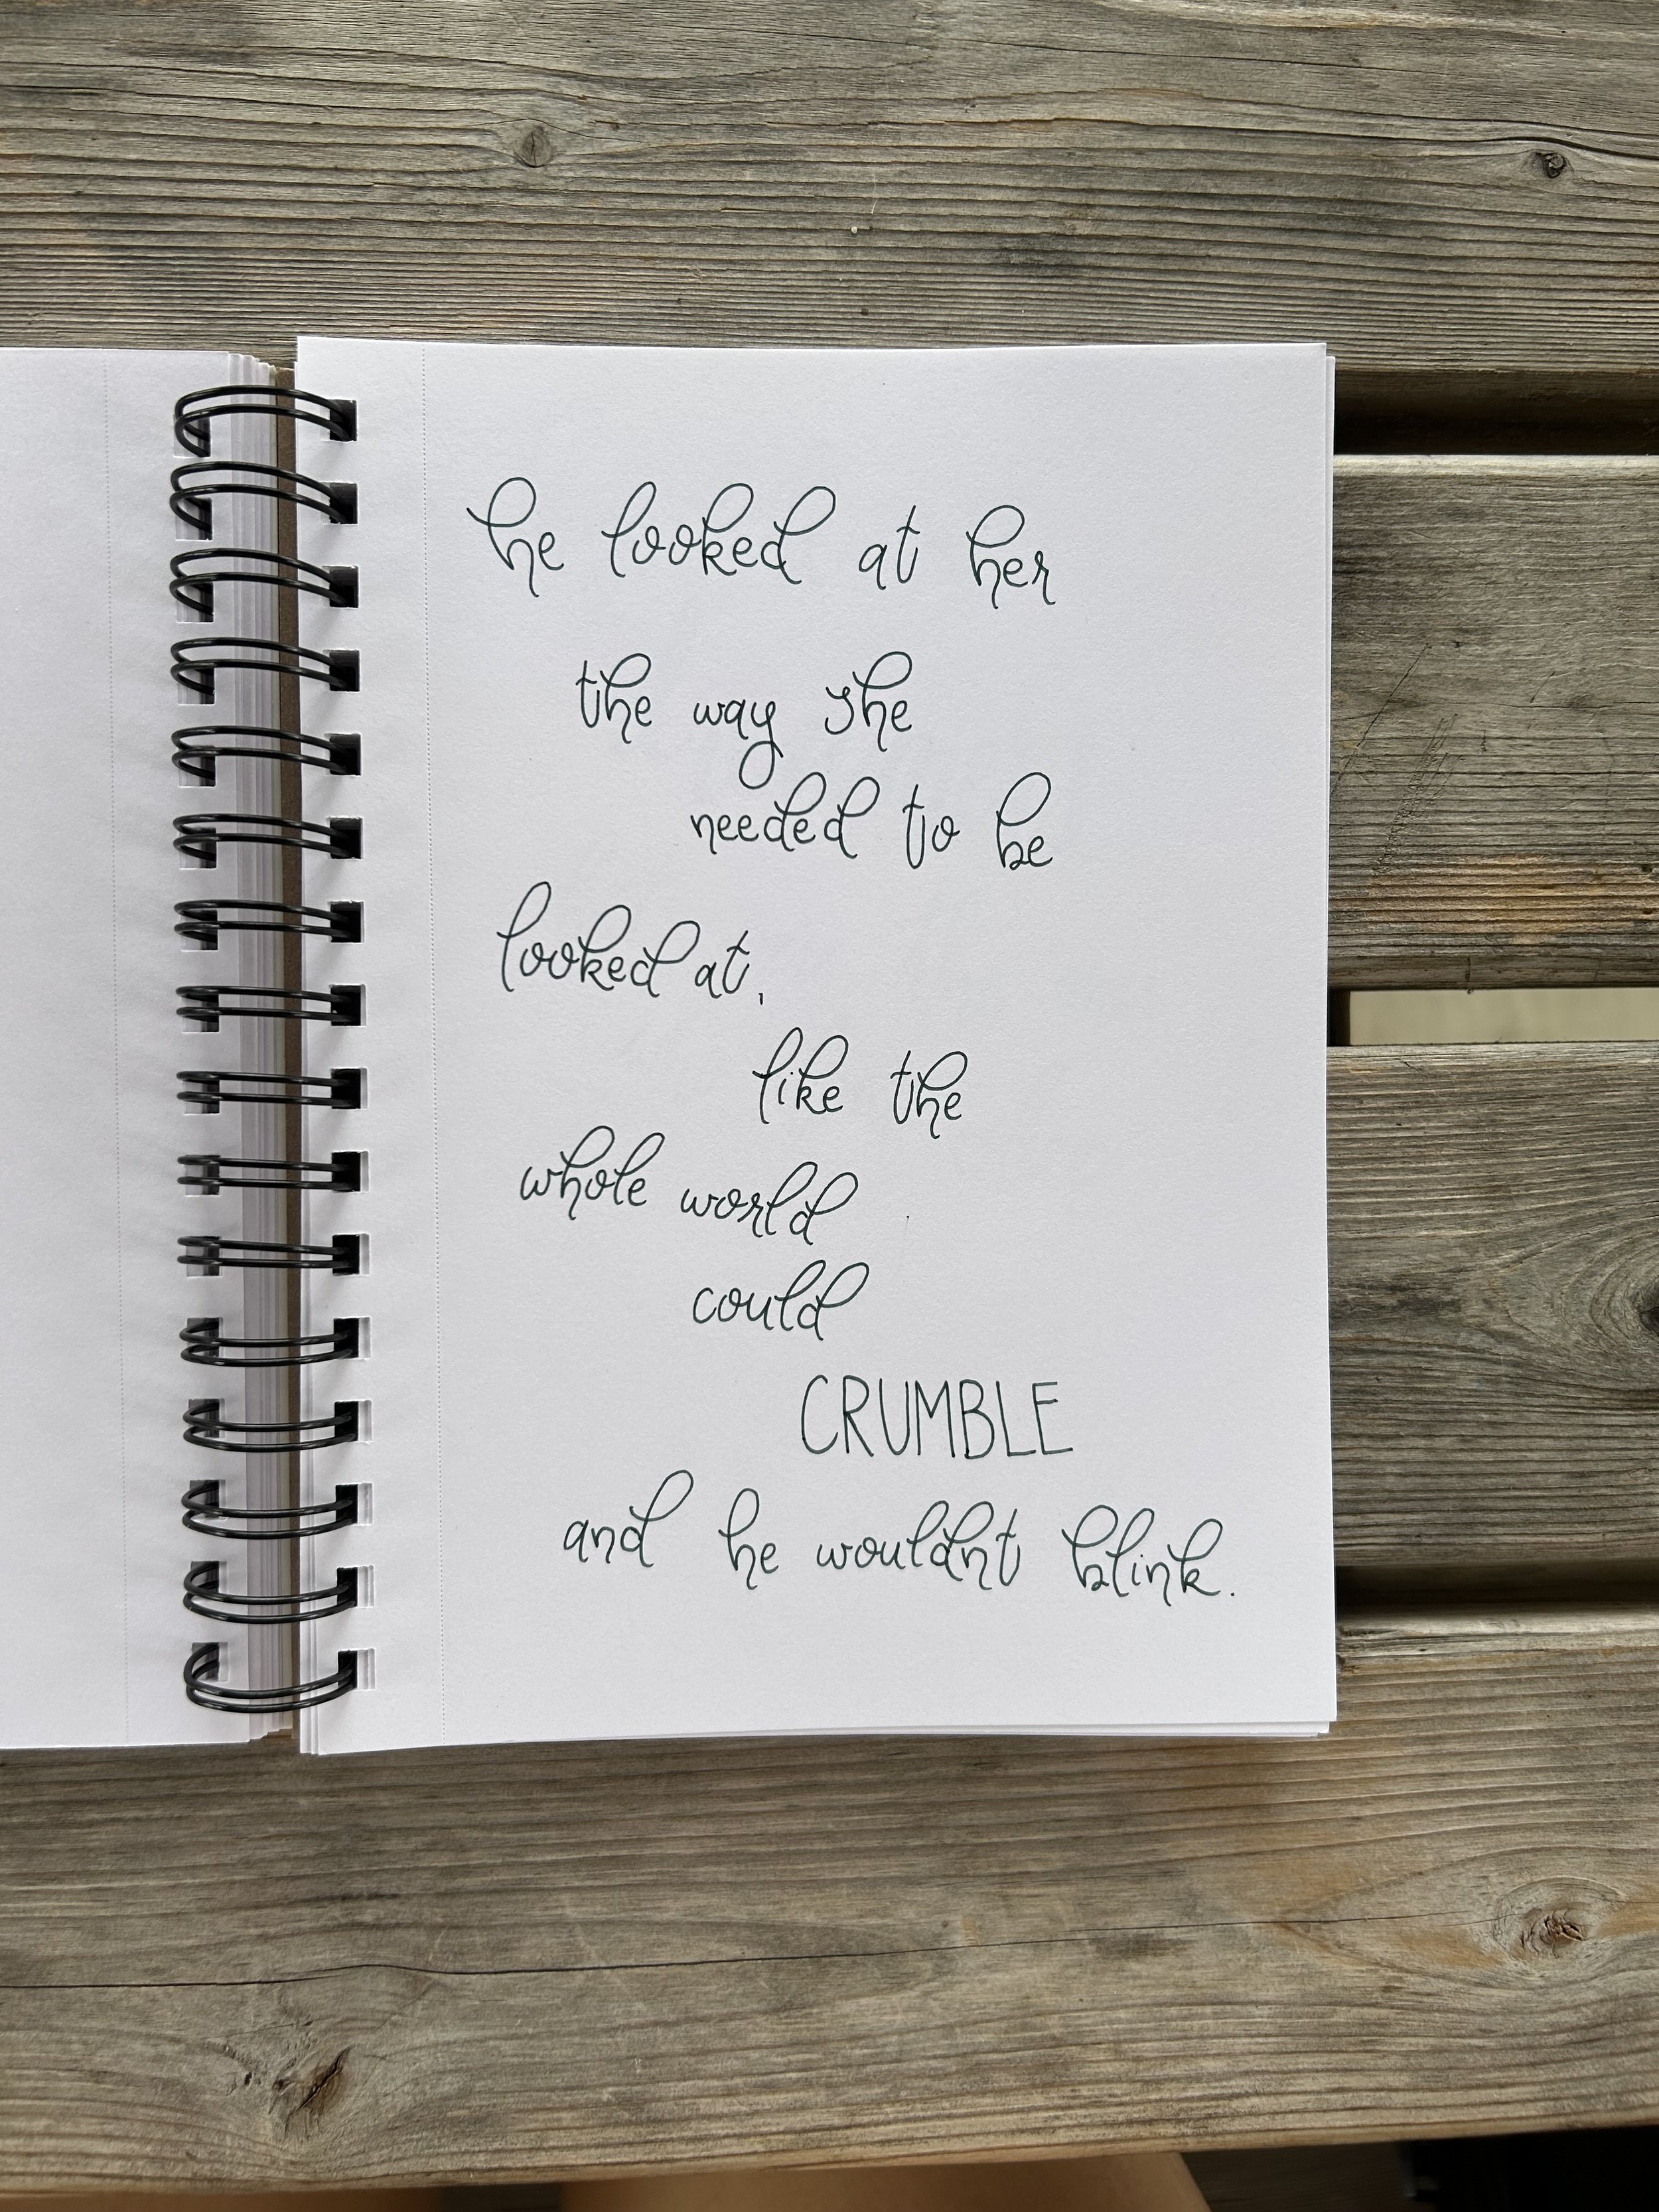 he looked at her
the way she
needed to be
looked at,
like the
whole world
could
CRUMBLE
and he wouldnt blink.